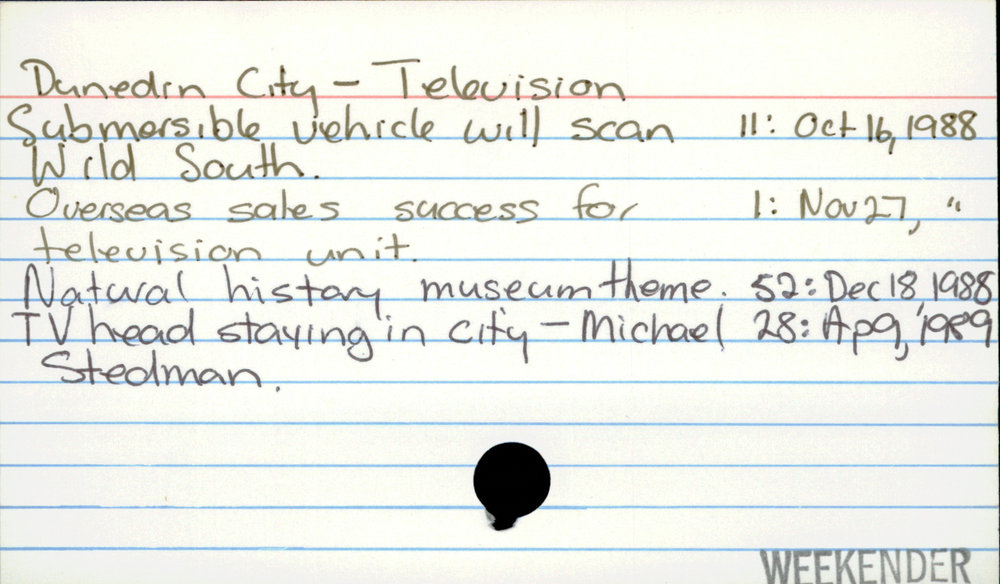 Dunedin City - Television
Submersible vehicle will scan 11: Oct 16, 1988
Wild South.
Overseas sales success for 1: Nov 27, "
television unit.
Natural history museum theme. 52: Dec 18, 1988
TV head staying in city - Michael 28: Ap 9, 1989
Stedman.
WEEKENDER